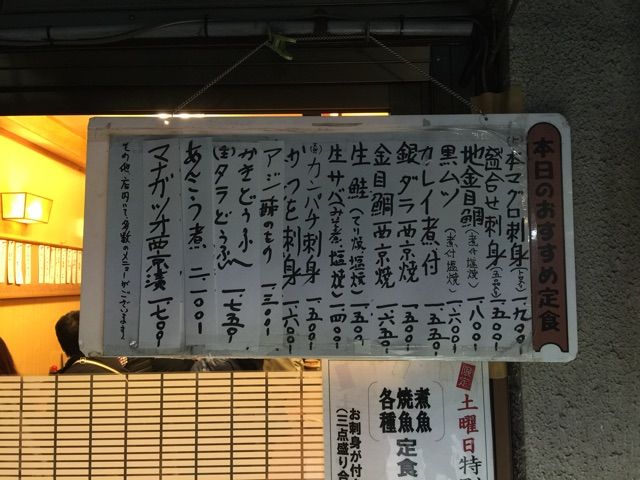 本日のおすすめ定食
本マグロ刺身(上中下) 一.九〇〇
盛合せ刺身(五点) 一.八〇〇
地金目鯛(煮付 塩焼) 一.六〇〇
黒ムツ
カレイ煮付 一.五五〇
銀ダラ西京焼 一.五五〇
金目鯛西京焼 一.六五〇
生鮭(てり焼 塩焼) 一.五〇〇
生サバ(みそ煮 塩焼) 一.四〇〇
カンパチ刺身 一.五〇〇
かつを刺身 一.六〇〇
アジ酢のもの 一.三〇〇
かきどうふ
タラどうふ 一.七五〇
あんこう煮 二.一〇〇
マナガツオ西京漬 一.七〇〇
その他、店内にて多数のメニューがございます。
限定
土曜日特
煮魚
焼魚
各種
定食
お刺身が付
(三点盛り合